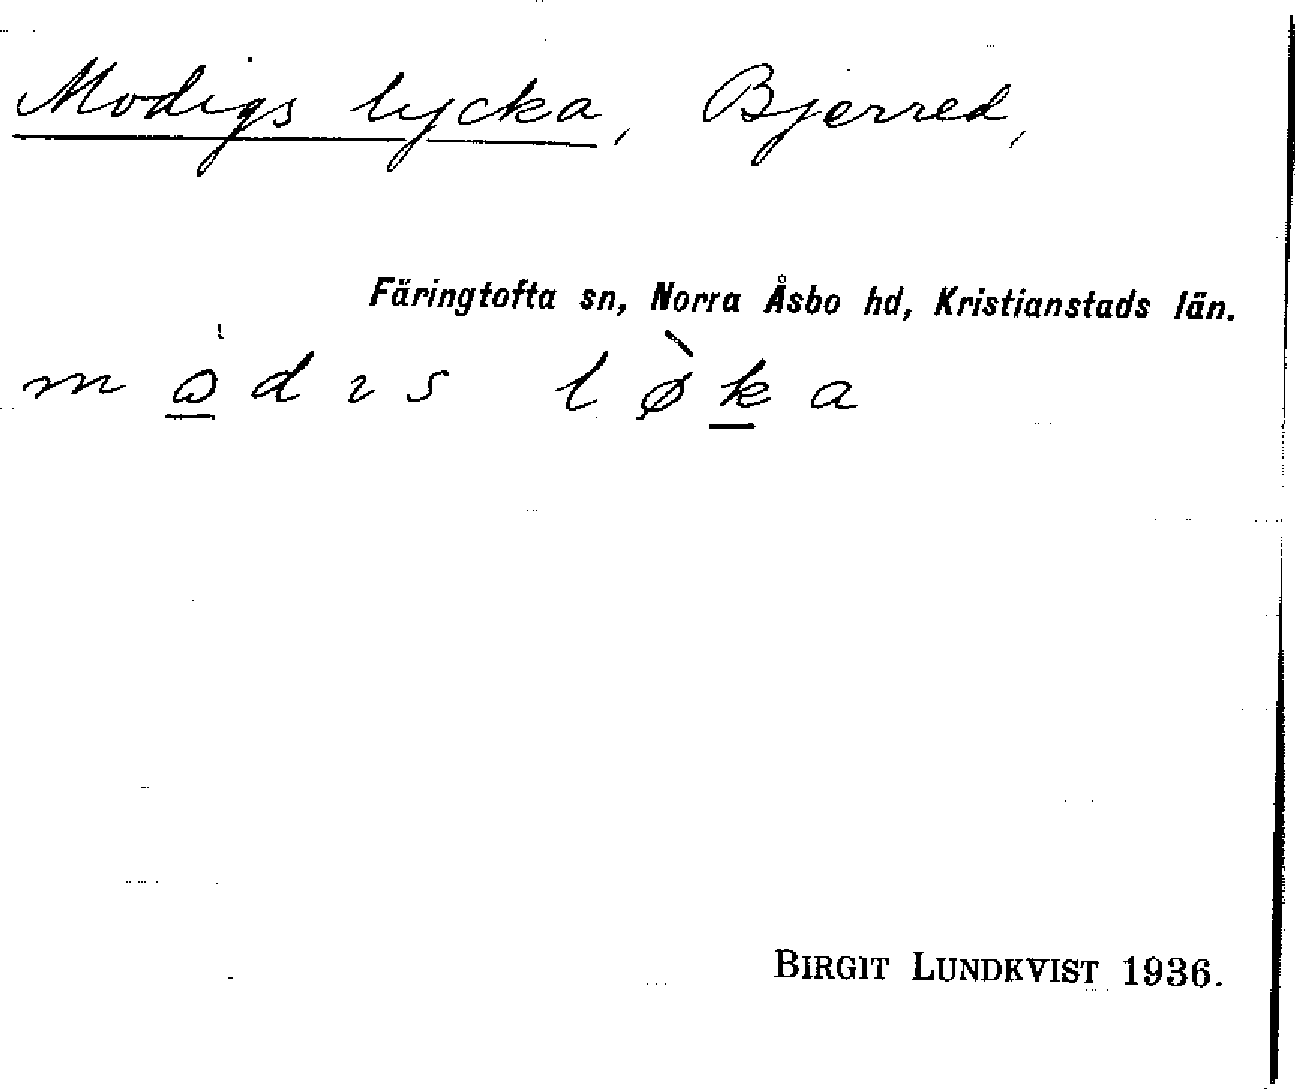 Modigs lycka, Bjerred,
Färingtofta sn, Norra Åsbo hd, Kristianstads län.
mɷ̲̀dıs lø̀k̲a
BIRGIT LUNDKVIST 1936.